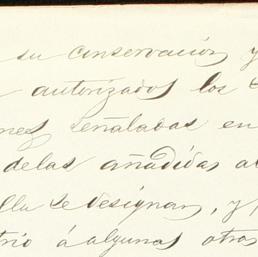 su conservacion y
autorizados los
nes señaladas en
de las añadidas al
lla se designan, y
trio á algunos otros